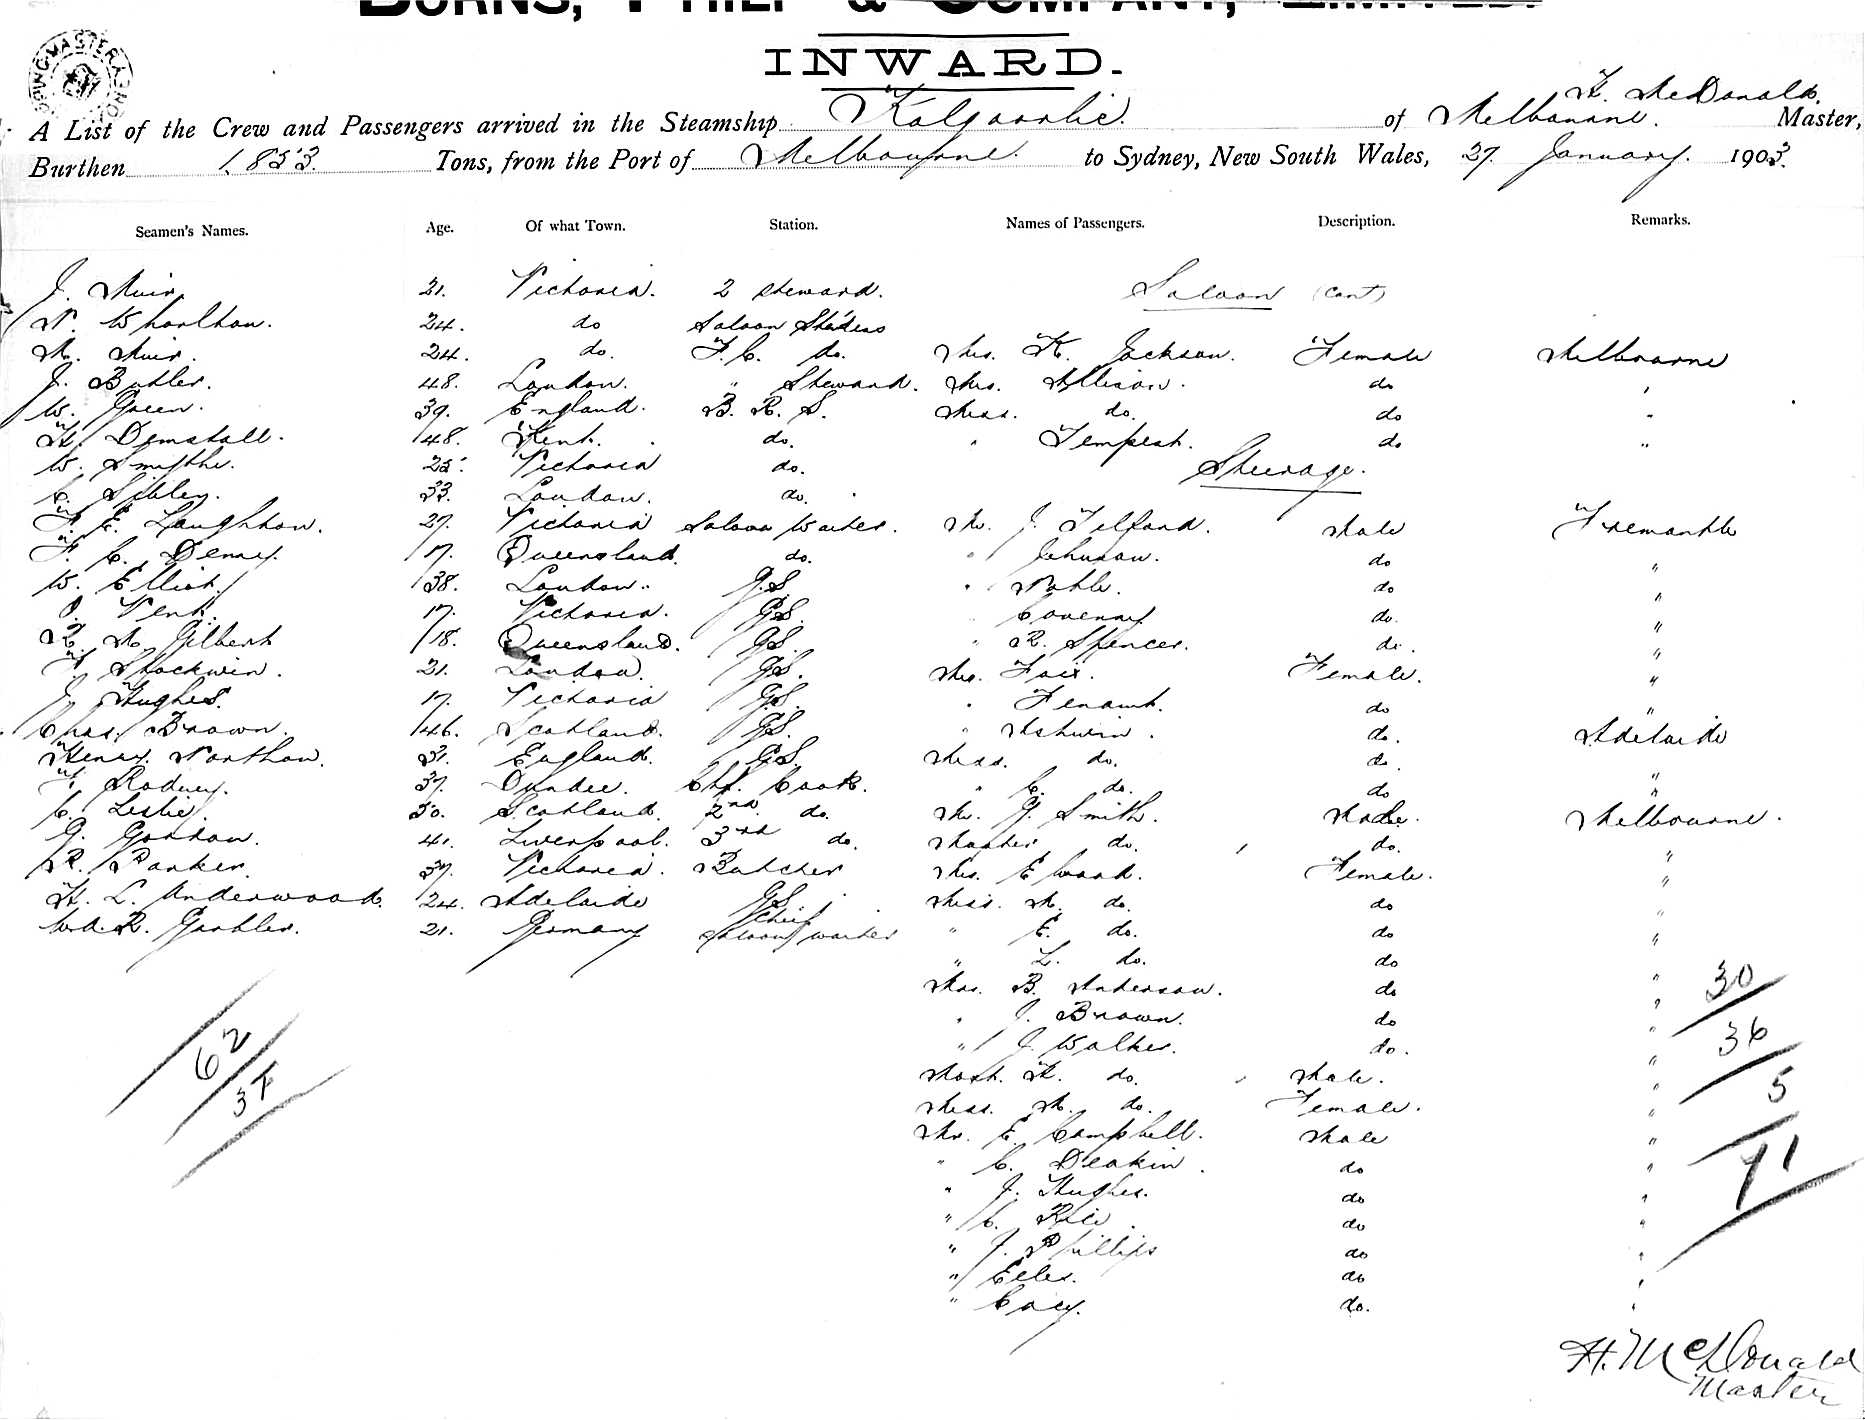 BURNS, PHILP & COMPANY, LIMITED.
INWARD.
H. McDonald.
A List of the Crew and Passengers arrived in the Steamship Kalgoorlie. of Melbourne. Master,
Burthen 1853. Tons, from the Port of Melbourne. to Sydney, New South Wales, 27 January. 1903.
Seamen's Names. Age. Of what Town. Station. Names of Passengers. Description. Remarks.
J. Muir. 21. Victoria. 2 Steward. Saloon (cont)
N. Whorlton. 24. do Saloon
M. Muir. 24. do. F.C. do. Mrs. K. Jackson. Female Melbourne
J. Butler. 48. London. " Steward. Mrs. Allison. do "
W. Green. 39. England. B. R. S. Miss. do. do "
H. 48. Kent. do. " Tempest. do "
W. Smythe. 25. Victoria do. Steerage.
C. Sibley. 33. London. do.
F. E. Laughton. 27. Victoria Saloon Waiter. Mr. J. Telford. Male Fremantle
F. C. Denny. 17. Queensland. do. " Johnson. do "
W. Elliot. 38. London. G.S. " Noble. do "
Vent. 17. Victoria. G.S. " Coverny do. "
M. Gilbert 18. Queensland. G.S. " R. Spencer. do. "
Stockwin. 21. London. G.S. Mrs. Fair. Female. "
J. Hughes. 17. Victoria G.S. " do "
Chas. Brown. 46. Scotland. G.S. " Ashwin. do. Adelaide
Henry Northan. 31. England. G.S. Miss. do. do. "
Rodney. 37. Dundee. Chf. Cook. " C. do. do "
C. Leslie. 50. Scotland. 2nd do. Mr. G. Smith. Male. Melbourne.
G. Gordon. 41. Liverpool. 3rd do. Master do. do. "
R. Parker. 37. Victoria. Butcher Mrs. E Wood. Female. "
H. L. Underwood. 24. Adelaide G.S. Miss. M. do. do "
R. Garbler. 21. Germany Chief Saloon waiter " E. do. do "
" L. do. do "
Mrs. B. Anderson. do "
" J. Brown. do "
" J. Walker. do. "
Mast. H. do. Male. "
Miss. M. do. Female. "
Mr. E. Campbell. Male "
" C. Deakin. do "
" J. Hughes. do "
" C. Rice. do "
" J. Phillips do "
" Eeles. do "
" Cacy. do. "
62
37
30
36
5
71
H. McDonald
Master